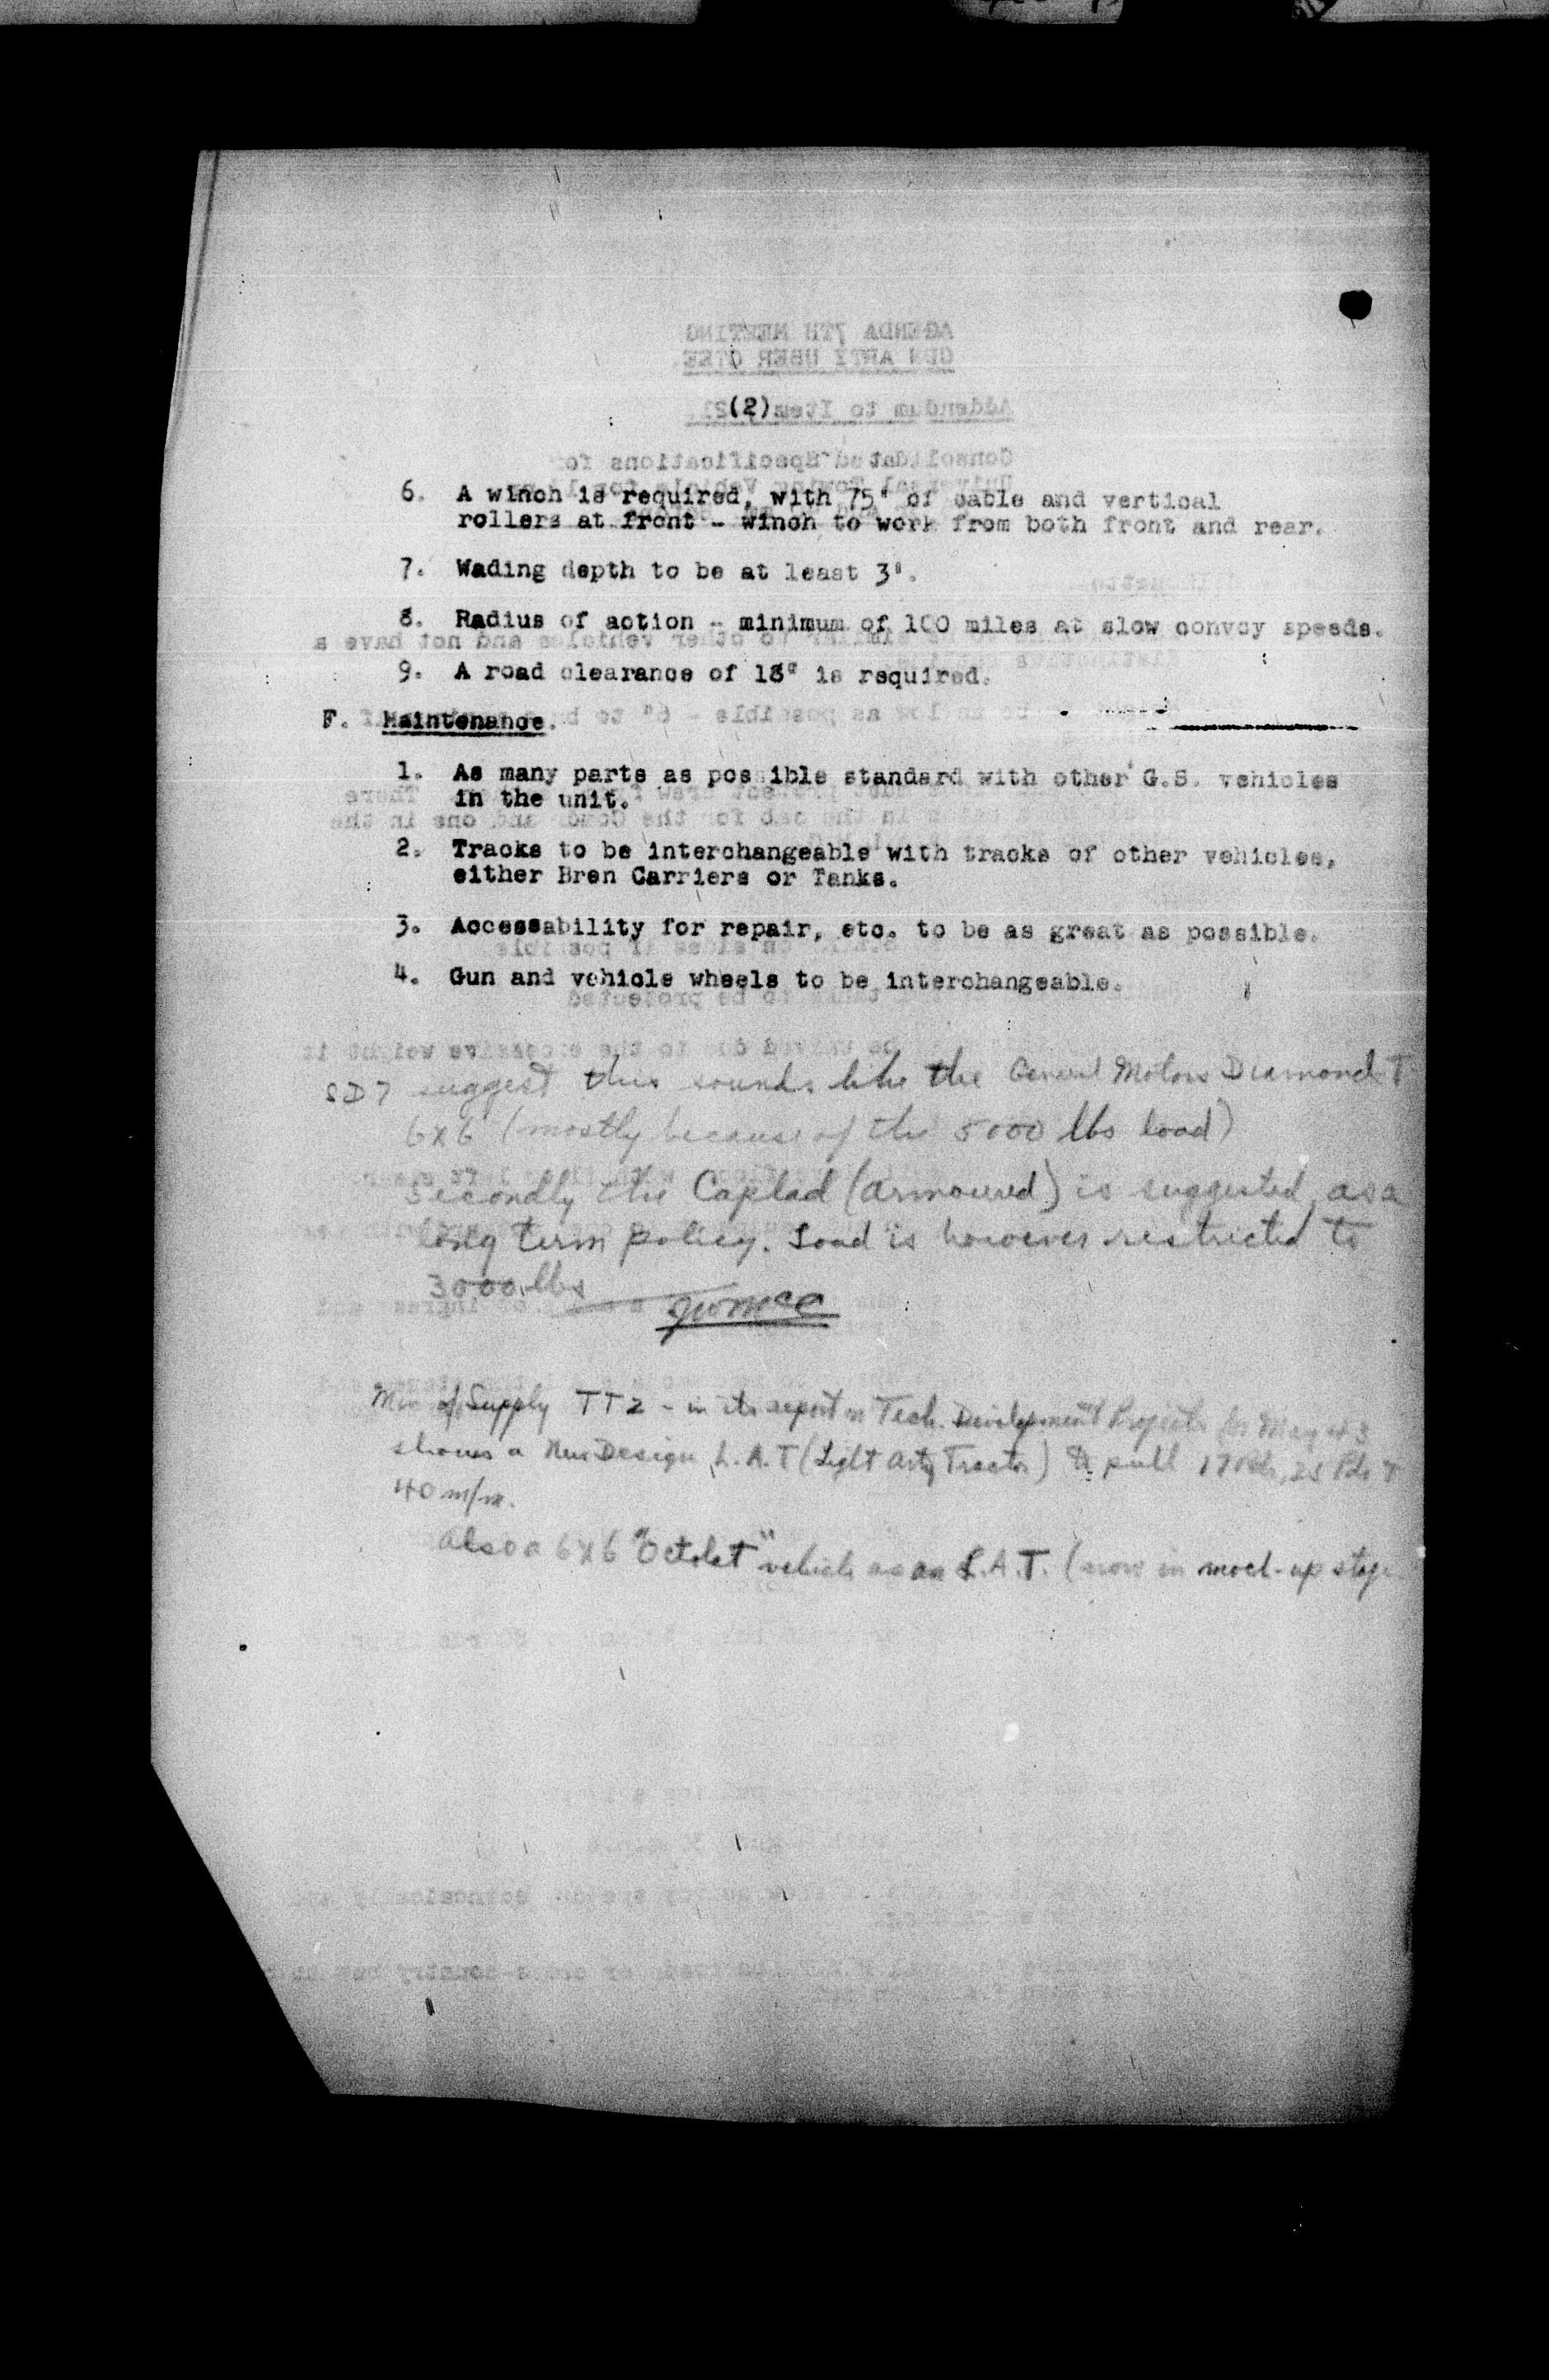 (2)
6. A winch is required, with 75' of cable and vertical
rollers at front - winch to work from both front and rear.
7. Wading depth to be at least 3'.
8. Radius of action - minimum of 100 miles at slow convoy speeds.
9. A road clearance of 18" is required.
F. Maintenance.
1. As many parts as possible standard with other G.S. vehicles
in the unit.
2. Tracks to be interchangeable with tracks of other vehicles,
either Bren Carriers or Tanks.
3. Accessability for repair, etc. to be as great as possible.
4. Gun and vehicle wheels to be interchangeable.
SD7 suggest this sounds like the General Motors Diamond T
6x6 (mostly because of the 5000 lbs load)
Secondly the Caplad (armoured) is suggested as a
long term policy. Load is however restricted to
3000 lbs
Min of Supply TT2 - in its report on Tech. Development Projects for May 43
shows a New Design L.A.T (Light Arty Tractor) to pull 17 Pdr, 25 Pdr &
40 m/m.
Also a 6x6 "Octolet" vehicle as an L.A.T. (now in mock-up stage